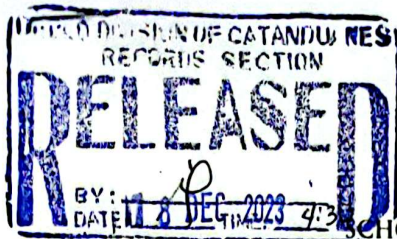 DIVISION OF CATANDUANES
RECORDS SECTION
RELEASED
BY:
DATE 18 DEC 2023 TIME 4:3
SCHO